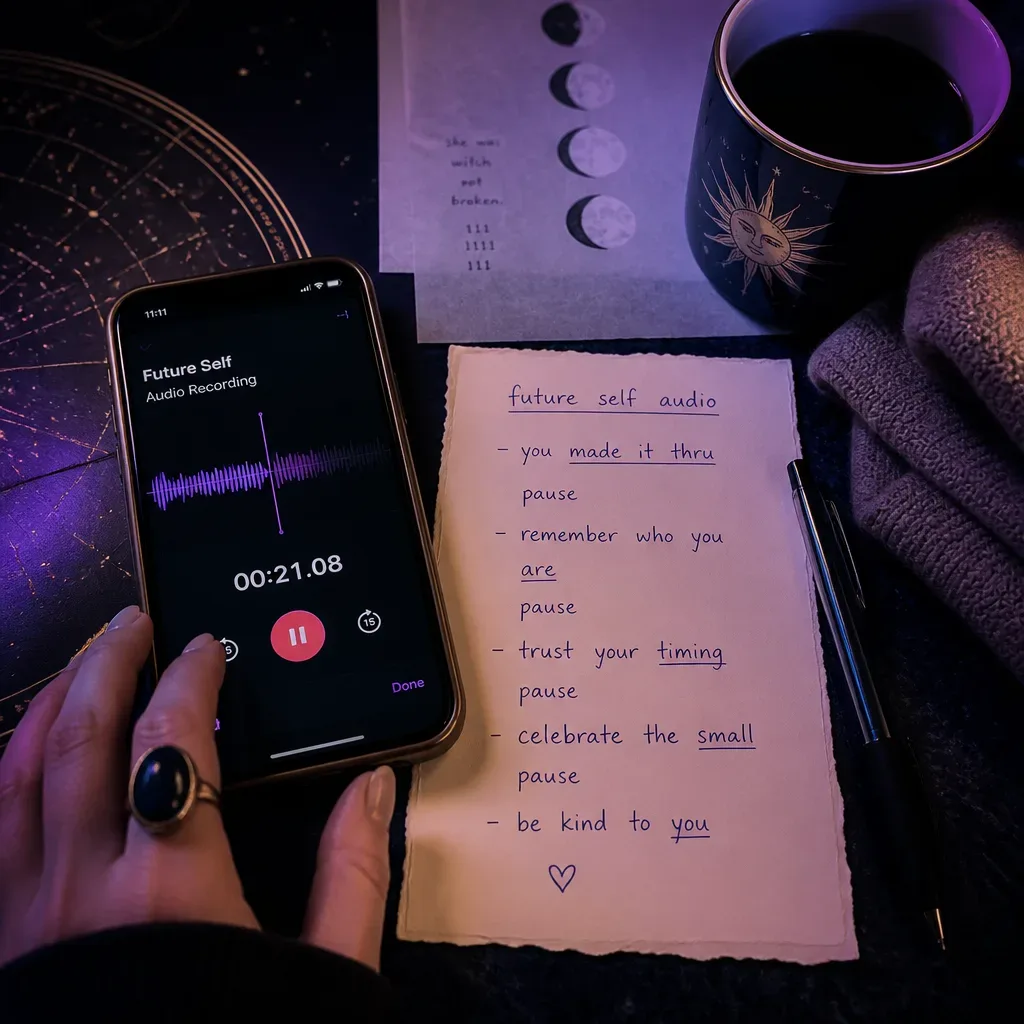 she was
witch
not
broken.
111
1111
111
11:11
Future Self
Audio Recording
00:21.08
15
Done
future self audio
- you made it thru
pause
- remember who you
are
pause
- trust your timing
pause
- celebrate the small
pause
- be kind to you